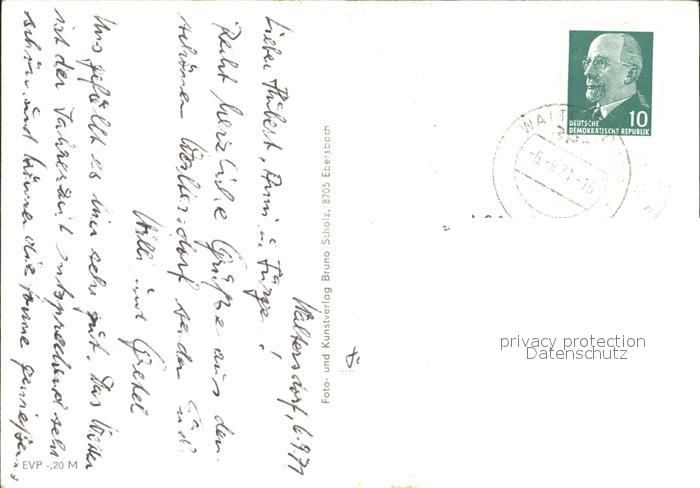 Waltersdorf, 6.9.71
Lieber Hubert, Anni u. Jürgen!
Recht herzliche Grüße aus dem
schönen Waltersdorf senden Euch
Willi und Gretel
Uns gefällt es hier sehr gut. Das Wetter
ist der Jahreszeit entsprechend sehr
schön und können die Sonne genießen.
EVP -,20 M
Foto- und Kunstverlag Bruno Scholz, 8705 Ebersbach
10
DEUTSCHE
DEMOKRATISCHE REPUBLIK
-6.-9.71-16
privacy protection
Datenschutz